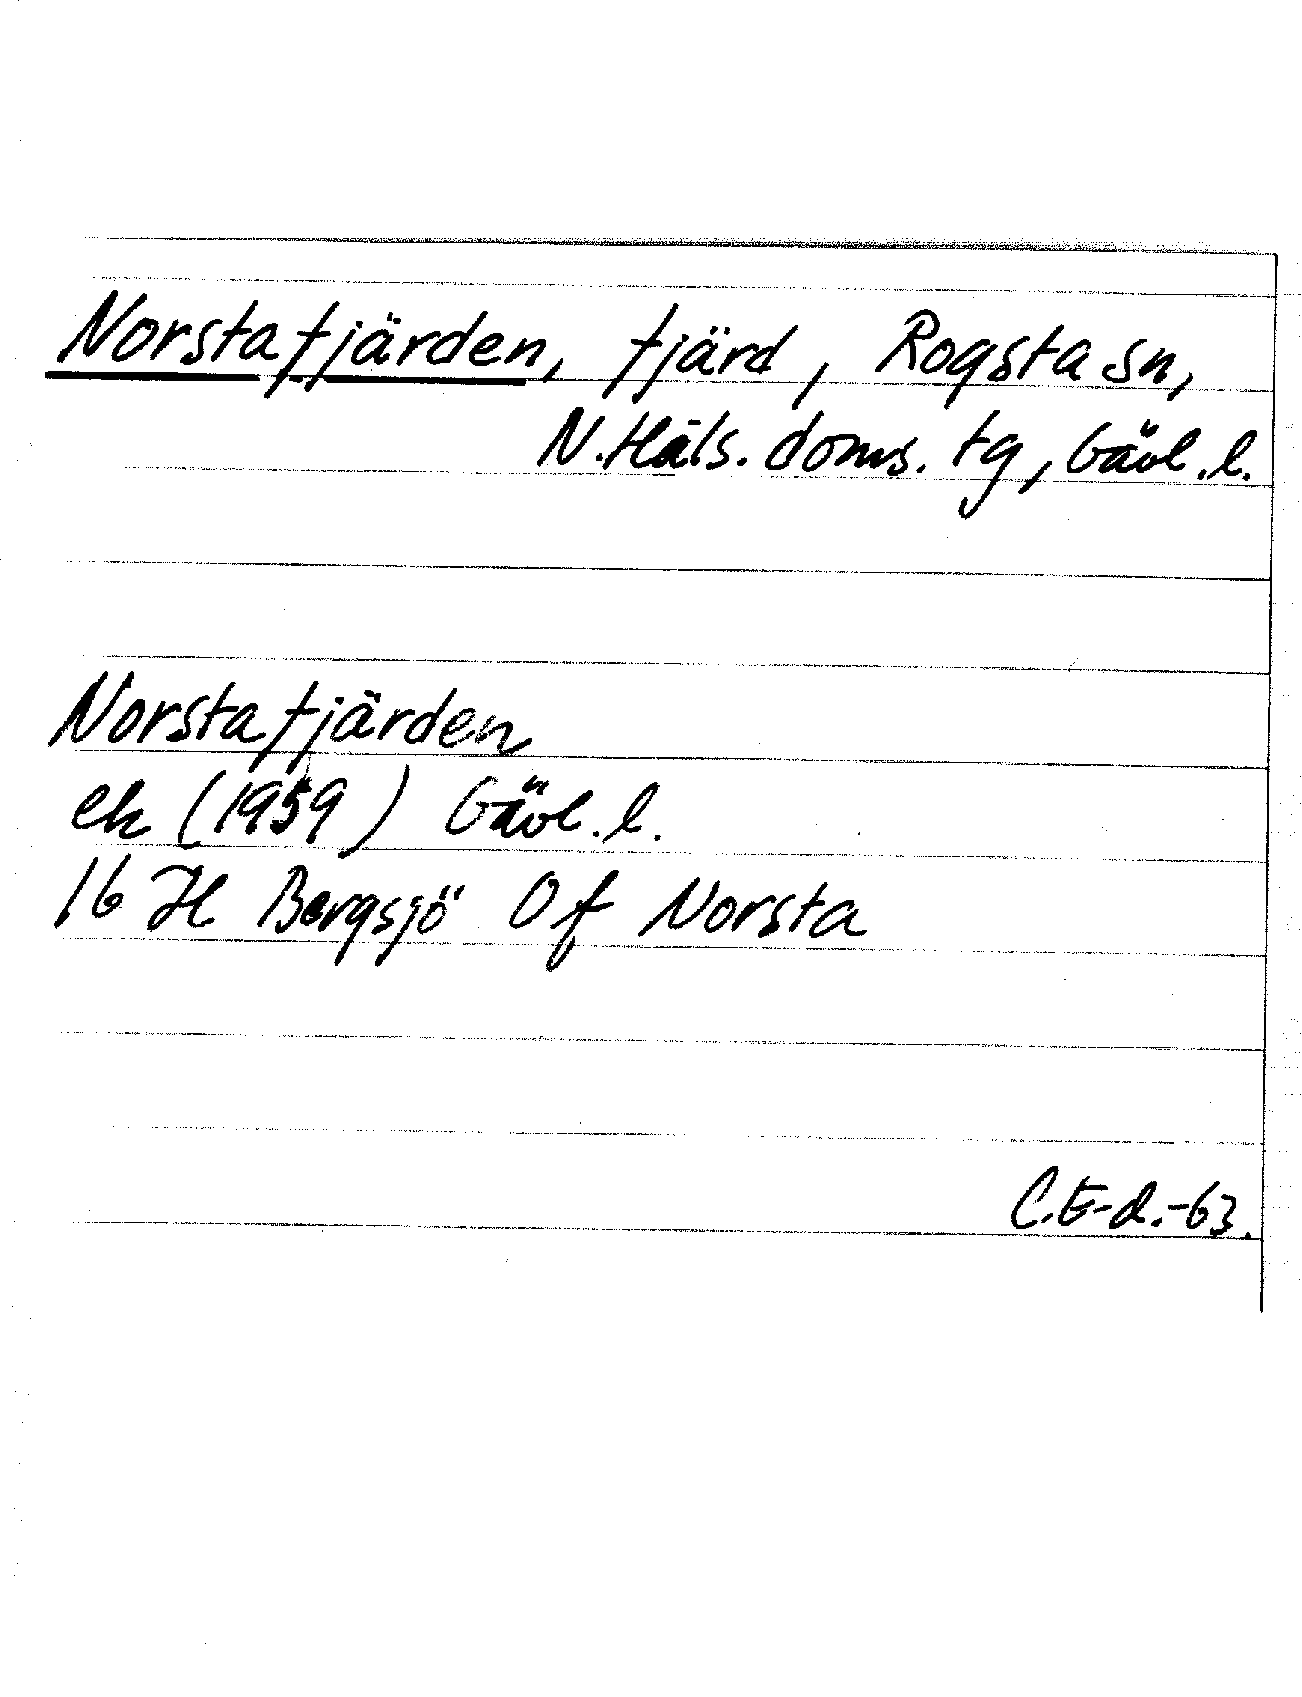 Norstafjärden, fjärd, Rogsta sn,
N. Häls. doms. tg, Gävl. l.
Norstafjärden
ek (1959) Gävl. l.
16 H Bergsjö Of Norsta
C.E-d.-63.